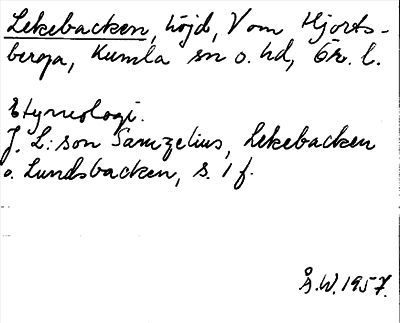 Lekebacken, höjd, V om Hjorts-
berga, Kumla sn o. hd, Ör. l.
Etymologi.
J. L:son Samzelius, Lekebacken
o. Lundsbacken, s. 1 f.
Å.W. 1957.